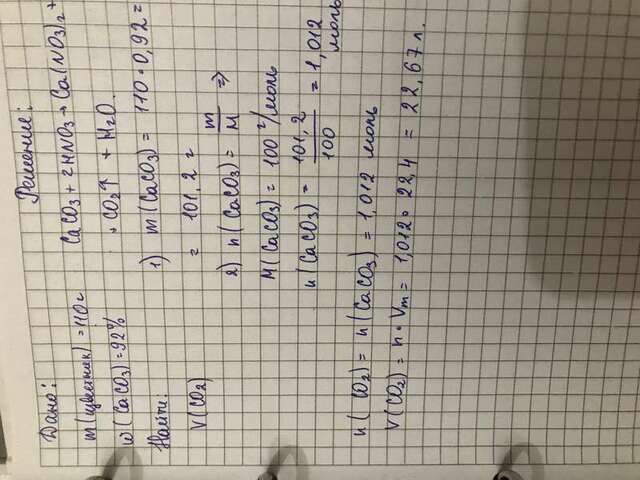 Дано:
m(цвестник) = 110 г
ω(CaCO₃) = 92%
Найти:
V(CO₂)
Решение:
CaCO₃ + 2HNO₃ → Ca(NO₃)₂ +
+ CO₂↑ + H₂O.
1) m(CaCO₃) = 110 · 0,92 =
= 101,2 г
2) n(CaCO₃) = m/M ⇒
M(CaCO₃) = 100 г/моль
n(CaCO₃) = 101,2/100 = 1,012 моль
n(CO₂) = n(CaCO₃) = 1,012 моль
V(CO₂) = n · Vm = 1,012 · 22,4 = 22,67 л.